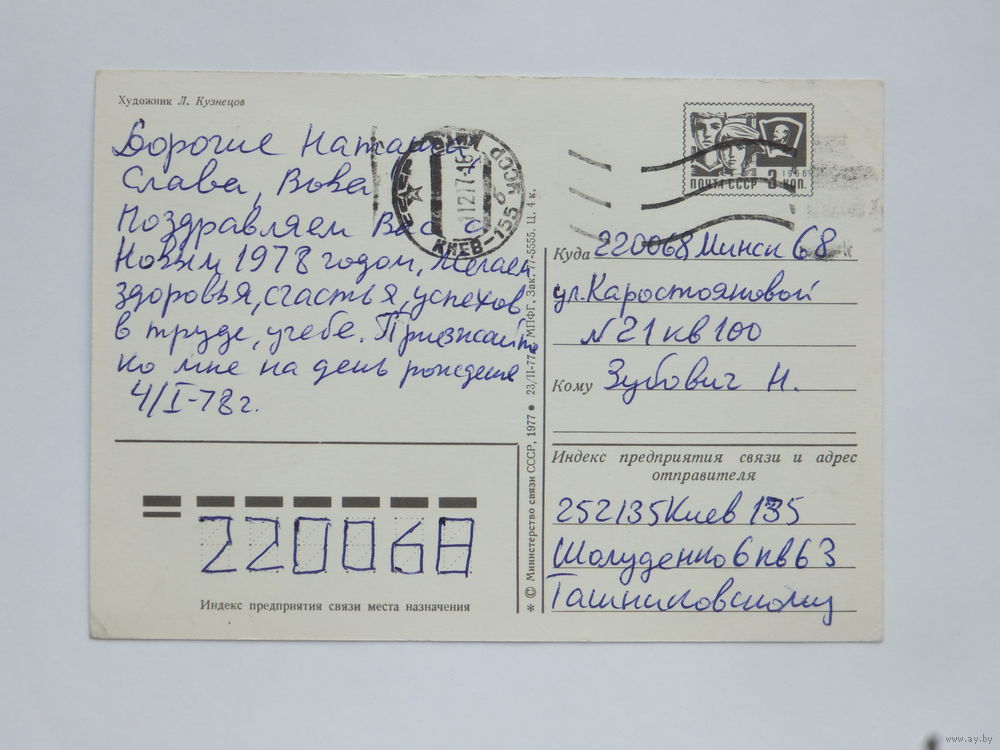 Художник Л. Кузнецов
Дорогие Наташа
Слава, Вова
Поздравляем Вас с
Новым 1978 годом, Желаем
здоровья, счастья, успехов
в труде, учебе. Приезжайте
ко мне на день рождения
4/I-78г.
220068
Индекс предприятия связи места назначения
КИЕВ-155
УССР
* © Министерство связи СССР, 1977 ● 23/II-77. МПФГ. Зак. 77-5555. Ц. 4 к.
ПОЧТА СССР 3 КОП.
1966
Куда 220068 Минск 68
ул. Каростояновой
№21 кв 100
Кому Зубович Н.
Индекс предприятия связи и адрес
отправителя
252135 Киев 135
Шолуденко 6 кв 63
Ташниковскому
www.ay.by